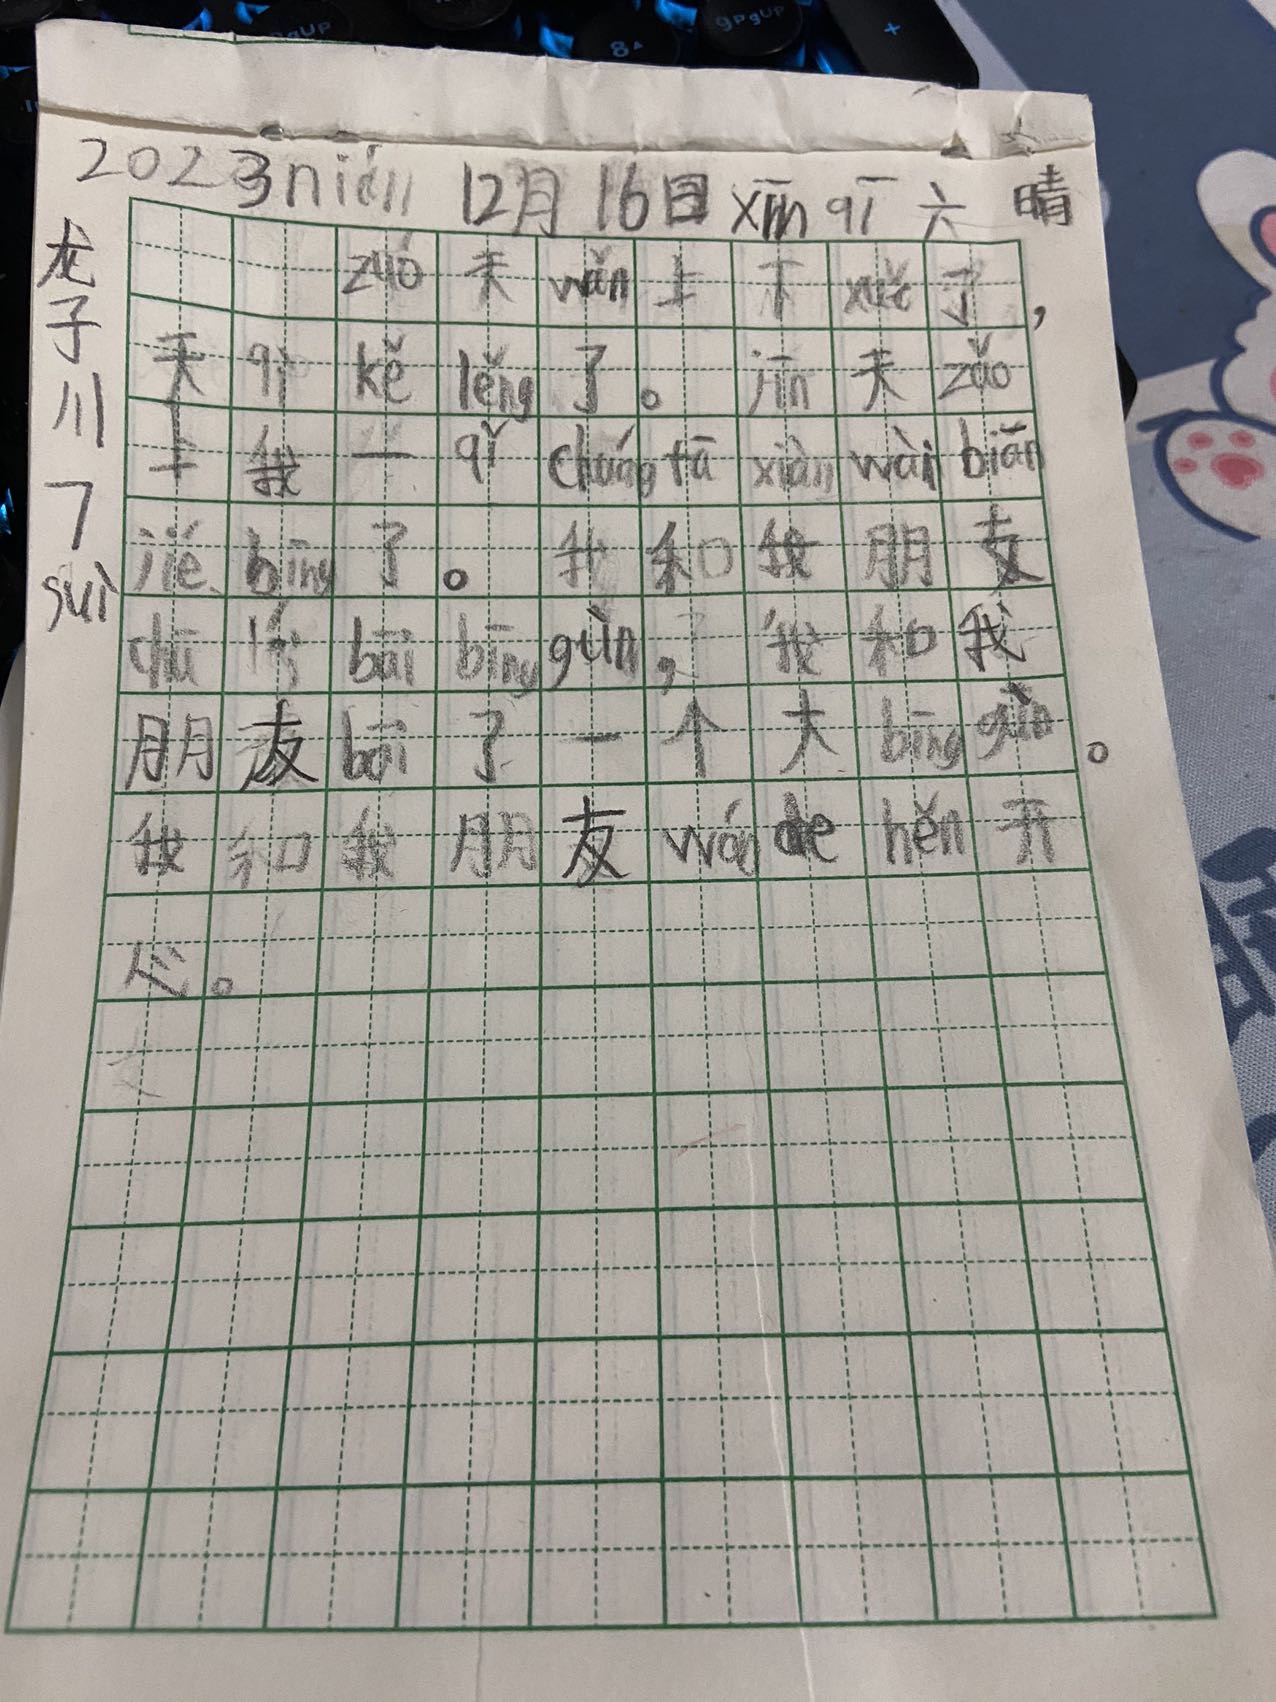 2023nián 12月 16日 xīn qī 六 晴
龙子川 7 suì
zuó 天 wǎn 上 下 xuě 了,
天 qì kě lěng 了。 jīn 天 zǎo
上 我 一 qǐ chuáng tā xiàn wài biān
jié bīng 了。 我 和 我 朋 友
chū bāi bīng gùn, 我 和 我
朋 友 bāi 了 一 个 大 bīng gùn。
我 和 我 朋 友 wán de hěn 开
心。
PgUP
8
9PgUP
+